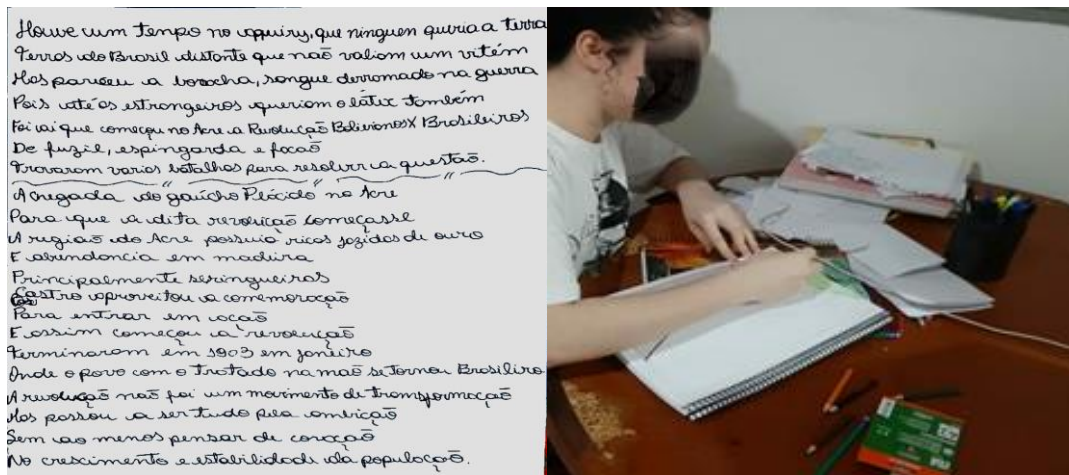 Houve um tempo no aquiry, que ninguen queria a terra
Terras do Brasil distante que naõ valiam um vitém
Mas pareceu a boracha, sangue derramado na guerra
Pois até os estrangeiros queriam o látex também
Foi ai que começou no Acre a Revolução Bolivianos X Brasileiros
De fuzil, espingarda e facaõ
Travaram varias batalhas para resolver a questaõ.
A chegada do gaúcho Plácido no Acre
Para que a dita revoluçaõ começasse
A regiaõ do Acre possuia ricas jazidas de ouro
E abundancia em madeira
Principalmente seringueiras
Castro aproveitou a comemoraçaõ
Para entrar em acaõ
E assim começou a revoluçaõ
Terminaram em 1903 em janeiro
Onde o povo com o Tratado na maõ se Tornou Brasiliro
A revoluçaõ naõ foi um movimento de transformaçaõ
Mas passou a ser tudo pela ambiçaõ
Sem ao menos pensar de coraçaõ
No crescimento e estabilidade da populaçaõ.